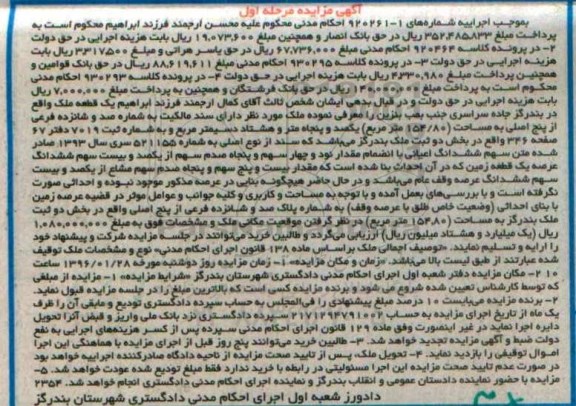 آگهی مزایده مرحله اول
بموجب اجراییه شماره‌های ۱-۹۲۰۲۶۱ احکام مدنی محکوم علیه محسن ارجمند فرزند ابراهیم محکوم است به
پرداخت مبلغ ۳۵۲,۴۸۵۸۳۳ ریال در حق بانک انصار و همچنین مبلغ ۱۹,۰۷۳,۶۰۰ ریال بابت هزینه اجرایی در حق دولت
۲- در پرونده کلاسه ۹۲۰۴۶۴ احکام مدنی مبلغ ۶۷,۷۳۶,۰۰۰ ریال در حق یاسر هراتی و مبلغ ۳۳۱۷۵۰۰ ریال بابت
هزینه اجرایی در حق دولت ۳- در پرونده کلاسه ۹۳۰۲۹۵ احکام مدنی مبلغ ۸۸,۶۱۹,۶۱۱ ریال در حق بانک قوامین و
همچنین پرداخت مبلغ ۴,۳۳۰,۹۸۰ ریال بابت هزینه اجرایی در حق دولت ۴- در پرونده کلاسه ۹۳۰۲۹۳ احکام مدنی
محکوم است به پرداخت مبلغ ریال در حق بانک فرشتگان و همچنین به پرداخت مبلغ ۷,۰۰۰,۰۰۰ ریال
بابت هزینه اجرایی در حق دولت و در قبال بدهی ایشان شخص ثالث آقای کمال ارجمند فرزند ابراهیم یک قطعه ملک واقع
در بندرگز جاده سراسری جنب پمپ بنزین را معرفی نموده ملک مورد نظر دارای سند مالکیت به شماره صد و شانزده فرعی
از پنج اصلی به مساحت (۱۵۴,۸۰ متر مربع) یکصد و پنجاه متر و هشتاد دسیمتر مربع و به شماره ثبت ۷۰۱۹ دفتر ۶۷
صفحه ۳۴۶ واقع در بخش دو ثبت ملک بندرگز می‌باشد که سند از نوع اصلی به شماره ۵۲۱۱۵۵ سری سال ۱۳۹۳ صادر
شده متن سهم ششدانگ اعیانی با انضمام مقدار نود و چهار سهم و پنجاه صدم سهم از یکصد و بیست سهم ششدانگ
عرصه یک قطعه زمین که در آن احداث بنا شده است که مقدار بیست و پنج سهم و پنجاه صدم سهم مشاع از یکصد و بیست
سهم ششدانگ عرصه وقف عام می‌باشد و در حال حاضر هیچگونه بنایی در عرصه مذکور موجود نبوده و احداثی صورت
نگرفته است و با بررسی‌های بعمل آمده و با توجه به مساحت و کاربری و کلیه جوانب و عوامل موثر در قضیه عرصه زمین
با بنای احداثی (وضعیت خاص طلق با عرصه وقف) به شماره پلاک صد و شانزده فرعی از پنج اصلی واقع در بخش دو ثبت
ملک بندرگز به مساحت (۱۵۴,۸۰ متر مربع) در نظر گرفتن موقعیت مکانی ملک و مشخصات فوق به مبلغ ۱,۰۸۰,۰۰۰,۰۰۰
ریال (یک میلیارد و هشتاد میلیون ریال) ارزیابی می‌گردد و طالبین خرید می‌توانند در جلسه مزایده شرکت و پیشنهاد خود
را ارایه و تسلیم نمایند. «توصیف اجمالی ملک براساس ماده ۱۳۸ قانون اجرای احکام مدنی» نوع و مشخصات ملک توقیف
شده عبارتند از طبق لیست بالا می‌باشد. «زمان و مکان مزایده» ۱- زمان مزایده روز دوشنبه مورخه ۱۳۹۶/۰۱/۲۸ ساعت
۱۰ ۲- مکان مزایده دفتر شعبه اول اجرای احکام مدنی دادگستری شهرستان بندرگز «شرایط مزایده» ۱- مزایده از مبلغی
که توسط کارشناس تعیین شده شروع می شود و برنده مزایده کسی است که بالاترین مبلغ را در جلسه مزایده قبول نماید.
۲- برنده مزایده می‌بایست ۱۰ درصد مبلغ پیشنهادی را فی‌المجلس به حساب سپرده دادگستری تودیع و مابقی آن را ظرف
یک ماه از تاریخ اجرای مزایده به حساب ۲۱۷۱۲۹۴۷۹۱۰۰۲ سپرده دادگستری نزد بانک ملی واریز و قبض آنرا تحویل
دایره اجرا نماید در غیر اینصورت وفق ماده ۱۲۹ قانون اجرای احکام مدنی سپرده پس از کسر هزینه‌های اجرایی به نفع
دولت ضبط و آگهی مزایده تجدید خواهد شد. ۳- طالبین خرید می‌توانند پنج روز قبل از اجرای مزایده با هماهنگی این اجرا
اموال توقیفی را بازدید نماید. ۴- تحویل ملک، پس از تایید صحت مزایده از ناحیه دادگاه صادرکننده اجراییه خواهد بود
در صورت عدم تایید صحت مزایده این اجرا مسئولیتی در رابطه با خرید ندارد فقط مبلغ تودیع شده عودت خواهد شد. ۵-
مزایده با حضور نماینده دادستان عمومی و انقلاب بندرگز و نماینده اجرای احکام مدنی دادگستری انجام خواهد شد. ۲۳۵۴
دادورز شعبه اول اجرای احکام مدنی دادگستری شهرستان بندرگز